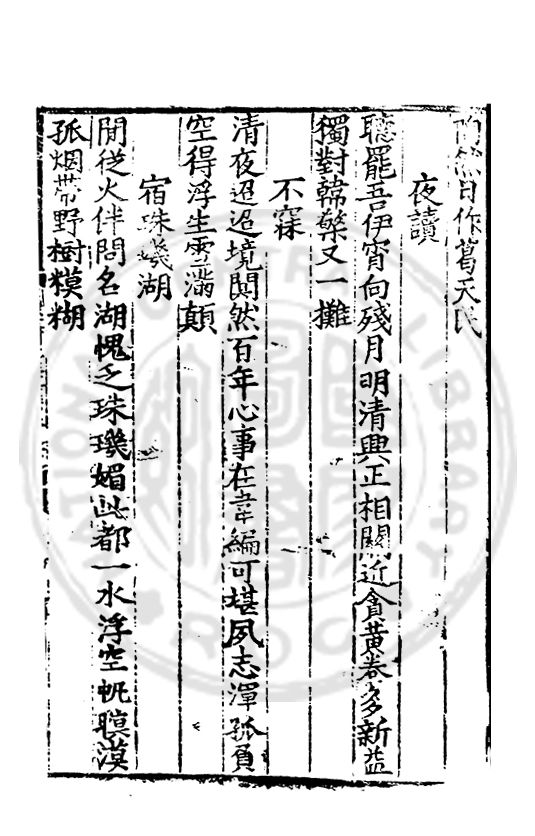 陶然自作葛天民
夜讀
聽罷吾伊宵向殘月明清興正相關近貪黃卷多新益
獨對韓檠又一攤
不寐
清夜迢迢境闃然百年心事在韋編可堪夙志渾孤負
空得浮生雪滿顛
宿珠璣湖
閒從火伴問名湖愧乏珠璣媚此都一水浮空帆暝漠
孤烟帶野樹糢糊